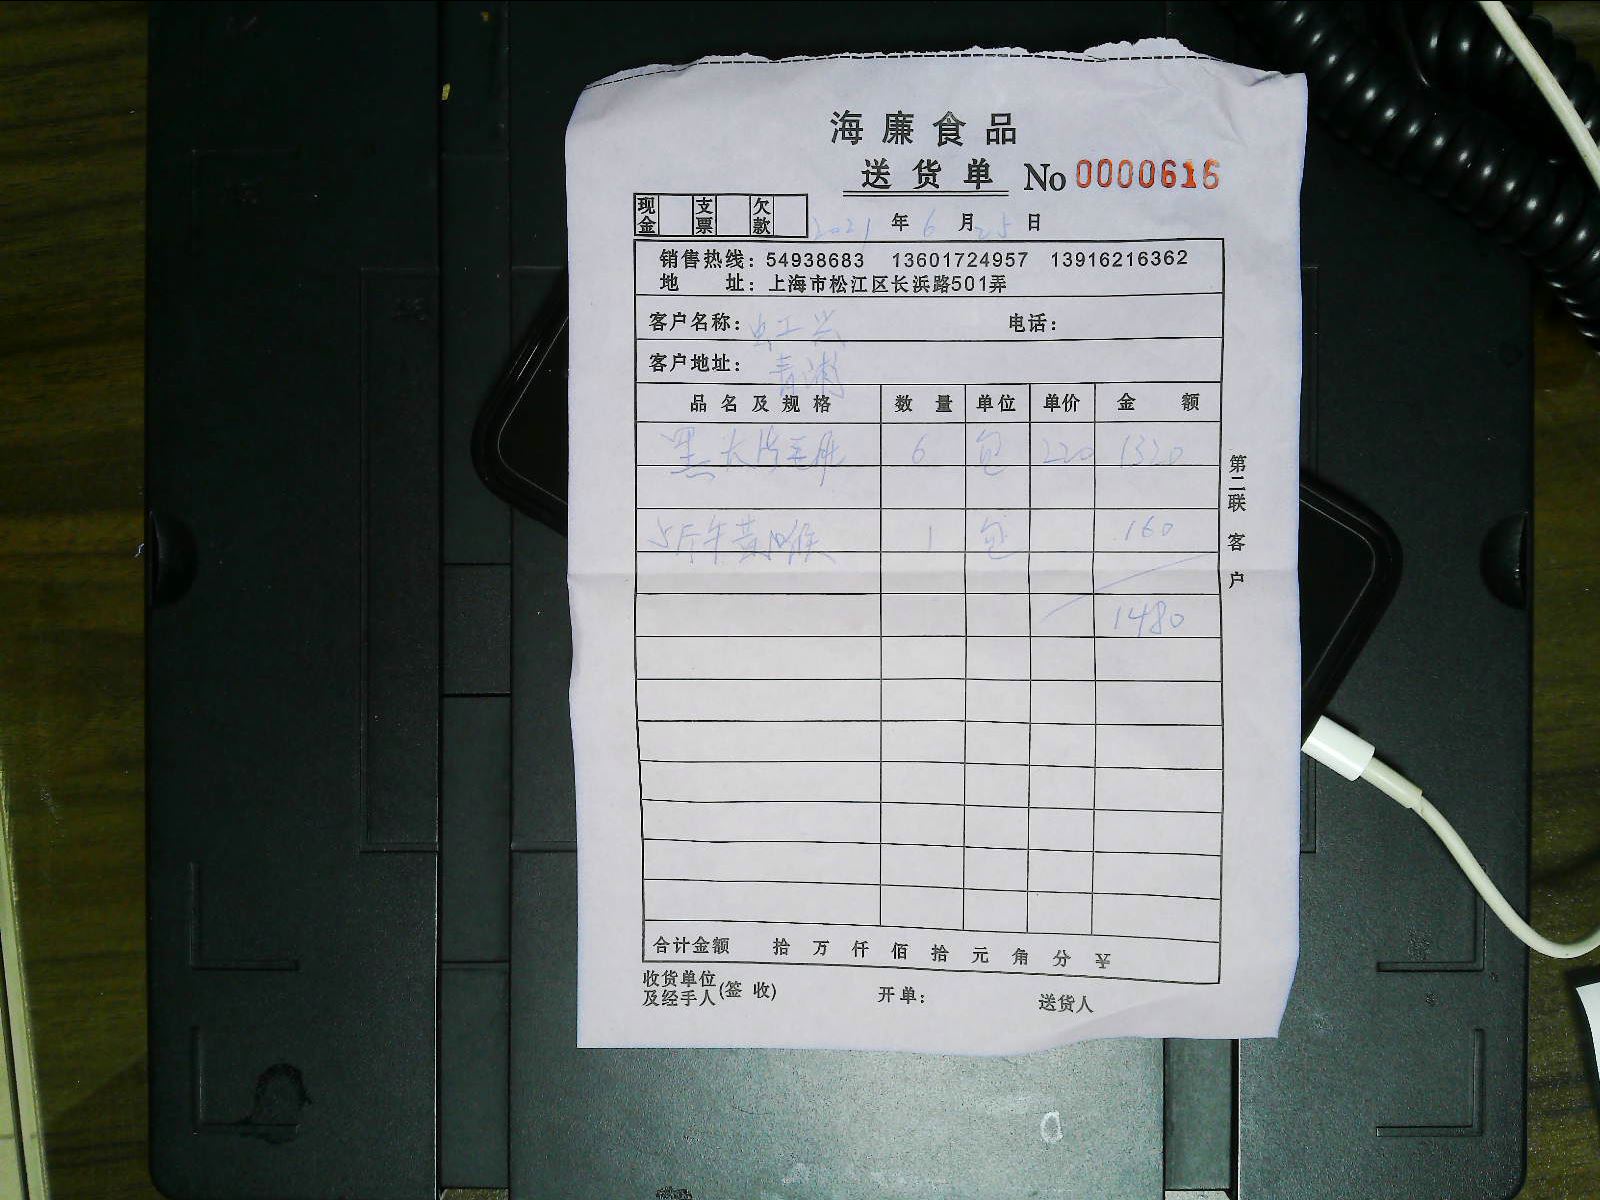 海廉食品
送货单 No 0000616
现金 支票 欠款 2021年6月25日
销售热线: 54938683 13601724957 13916216362
地 址: 上海市松江区长浜路501弄
客户名称: 虹兴 电话:
客户地址: 青浦
品名及规格 数量 单位 单价 金额
黑大片毛肚 6 包 220 1320
牛黄喉 1 包 160
1480
第二联 客户
合计金额 拾 万 仟 佰 拾 元 角 分 ¥
收货单位及经手人(签收) 开单: 送货人